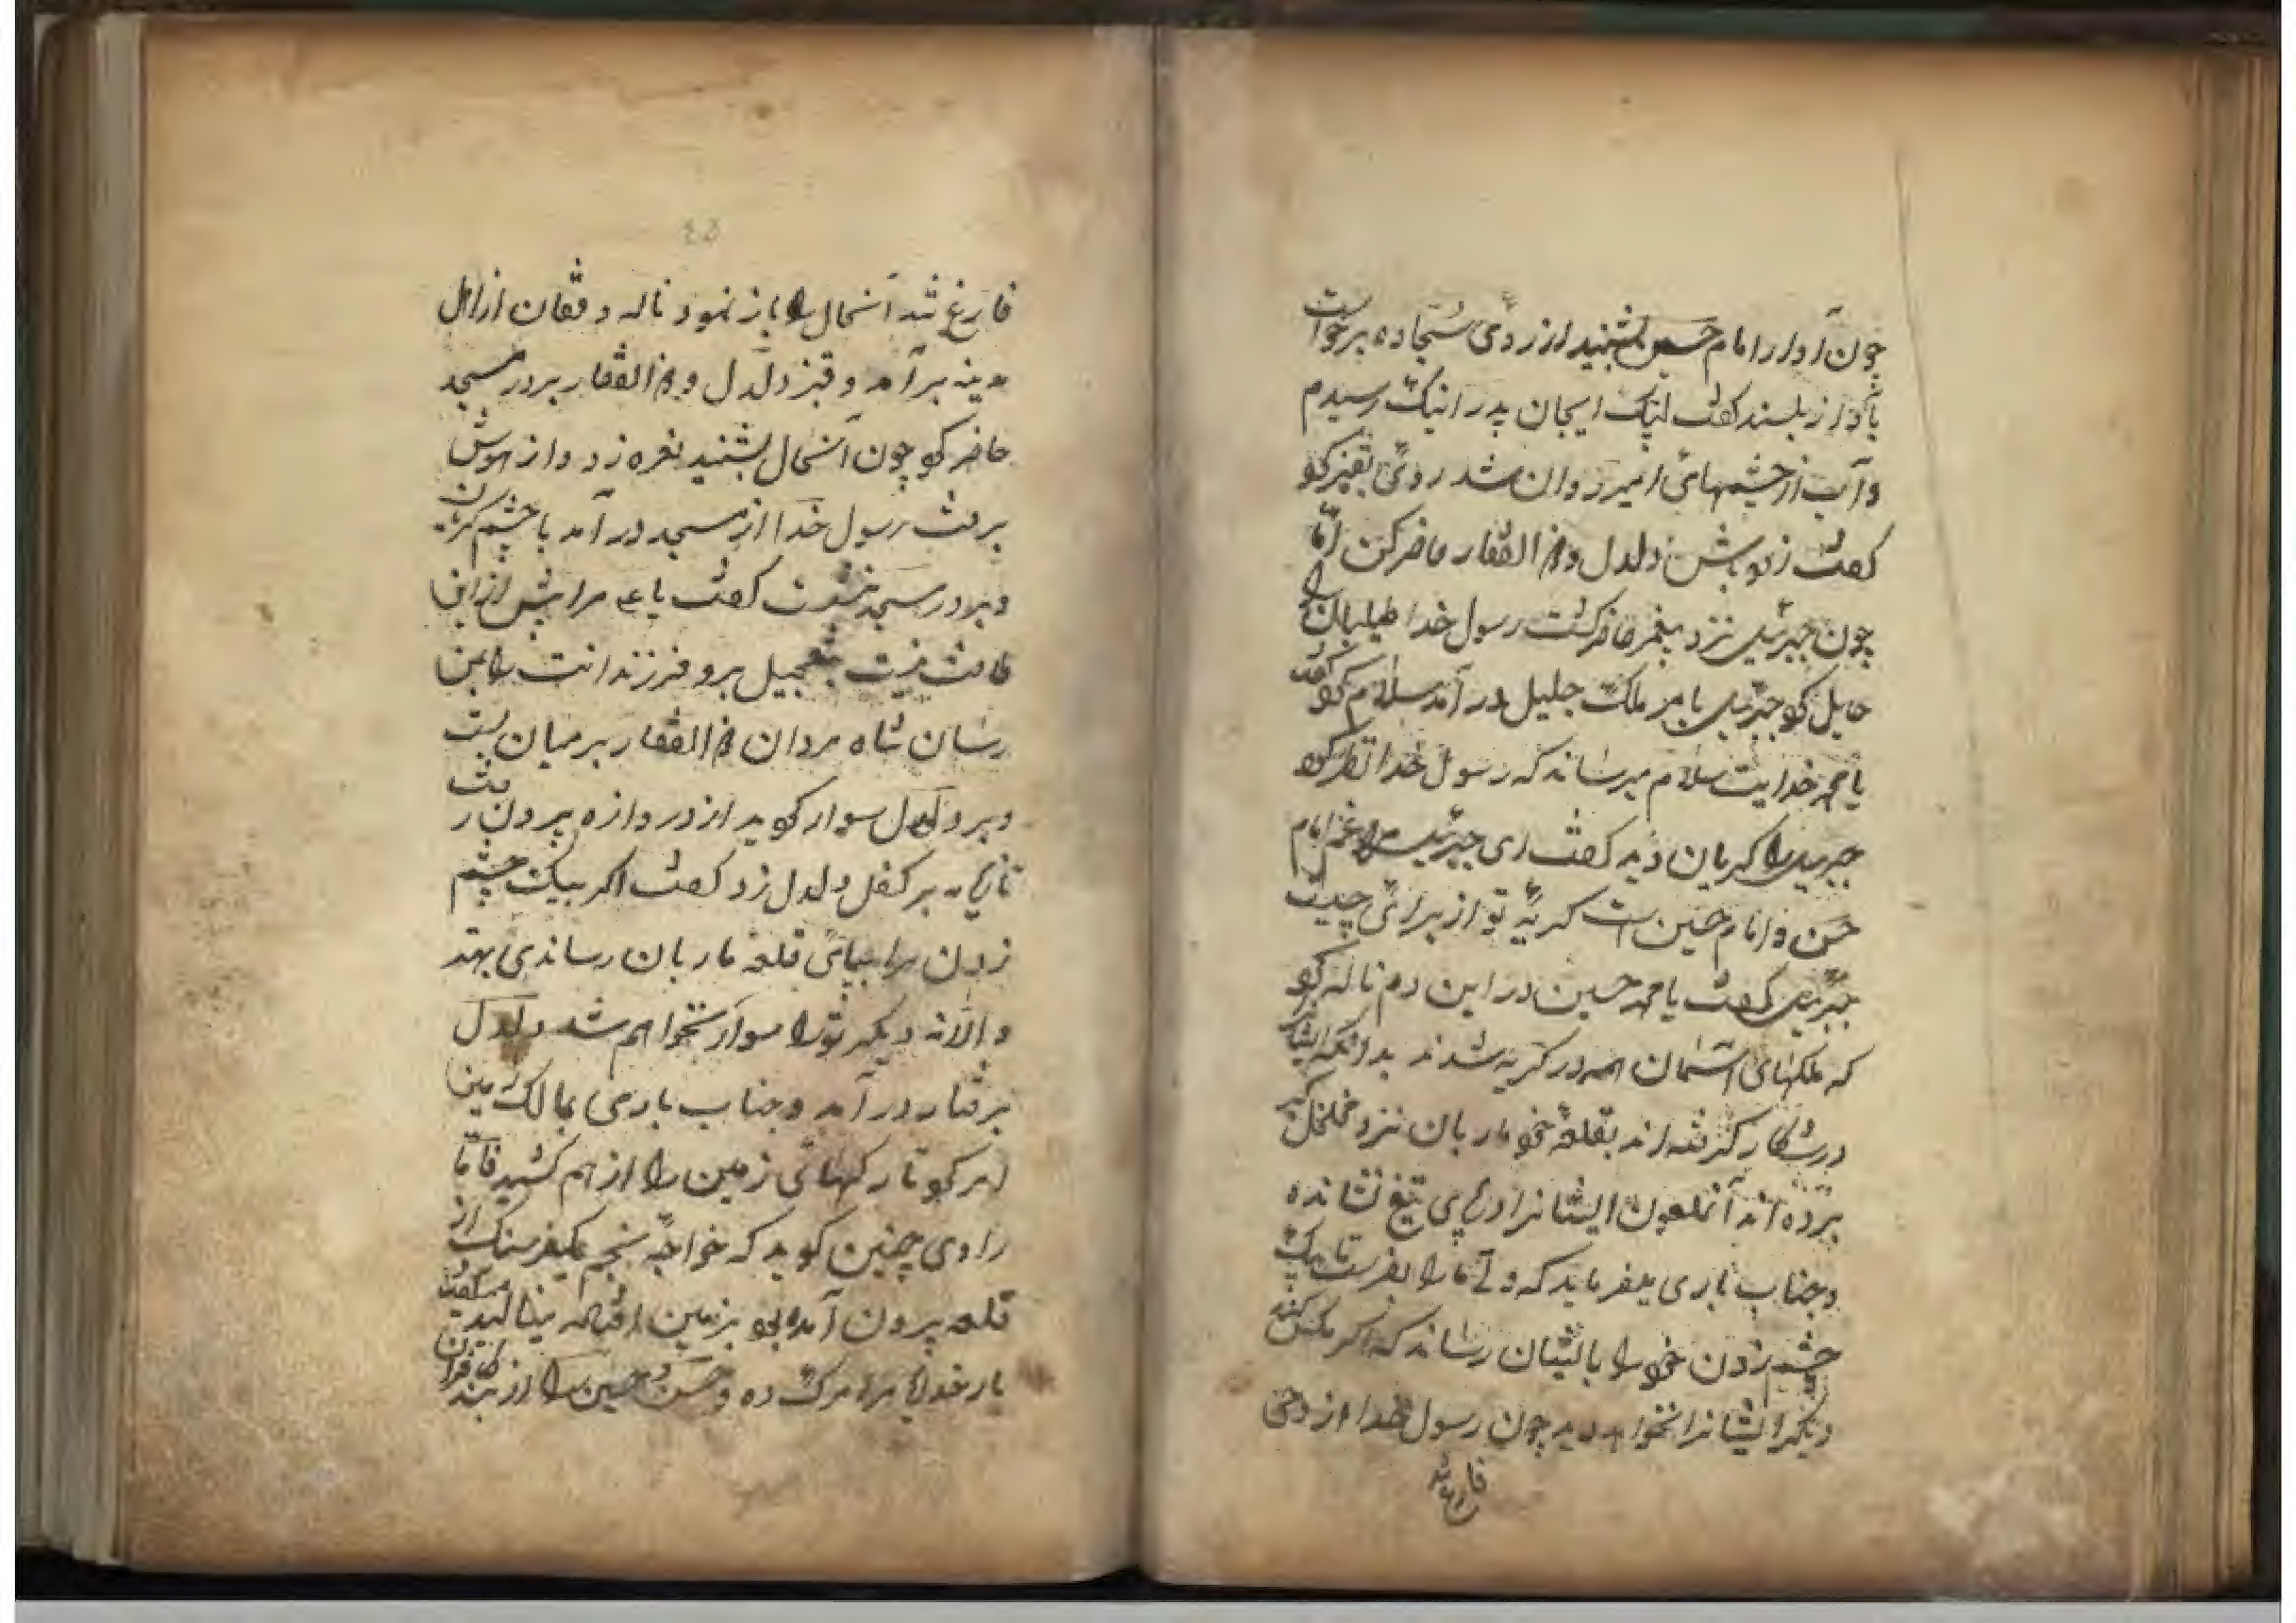 چون آواز امام حسین بشنید از روی سجاده برخواست
بآواز بلند کفت لبیک ایجان پدر اینک رسیدم
و آب از چشمهائی امیر روان شد روئی بقنبر کو
کفت زود باش دلدل و ذالفقار حاضر کن امّا
چون جبرئیل نزد پیغمبر حاضر کشت رسول خدا طیلسان را
حایل کو جبرئیل بامر ملک جلیل در آمد سلام کو کفت
یا محمد خدایت سلام میرساند که رسول خدا نظر کو
جبرییل را کریان دید کفت ای جبرئیل مرا غم امام
حسن و امام حسین است کریهٔ تو از برائی چیست
جبرئیل کفت یا محمد حسین در این دم ناله کو
که ملکهای آسمان همه در کریه شدند بدانکه ایشانرا
در شکار کرفته اند بقلعهٔ خو ماربان نزد خلخال کبر
برده اند آنملعون ایشانرا در پای تیغ نشانده
و جناب باری میفرماید که ولی ما را بفرست تا بیک
چشم زدن خو را بایشان رساند که اکر مکس کند
دیکر ایشانرا نخواهد دید چون رسول خدا از وحی
فارغ شد
٤٥
فارغ شد آنحال را باز نمود ناله و فغان از اهل
مدینه بر آمد و قنبر دلدل و ذالفقار بر در مسجد
حاضر کو چون آنحال بشنید نعره زد و از هوش
برفت رسول خدا از مسجد در آمد با چشم کریان
و بر در مسجد نشست کفت یا علی مرا پیش از این
طاقت نیست بتعجیل برو فرزندانت را بمن
رسان شاه مردان ذالفقار بر میان بست
و بر دلدل سوار کو بد از دروازه بیرون رفت
تازیانه بر کفل دلدل زد کفت اکر بیک چشم
زدن مرا بپائی قلعهٔ ماربان رساندی بهتر
و الا نه دیکر تو را سوار نخواهم شد دلدل
برفتار در آمد و جناب باری بمالک زمین
امر کو تا رکهائی زمین را از هم کشید فامّا
راوی چنین کوید که خواجه نجم یکفرسنک از
قلعه بیرون آمده بو بزمین افتاده مینالید میکفت
بار خدایا مرا مرک ده و حسن و حسین را از بند کافران